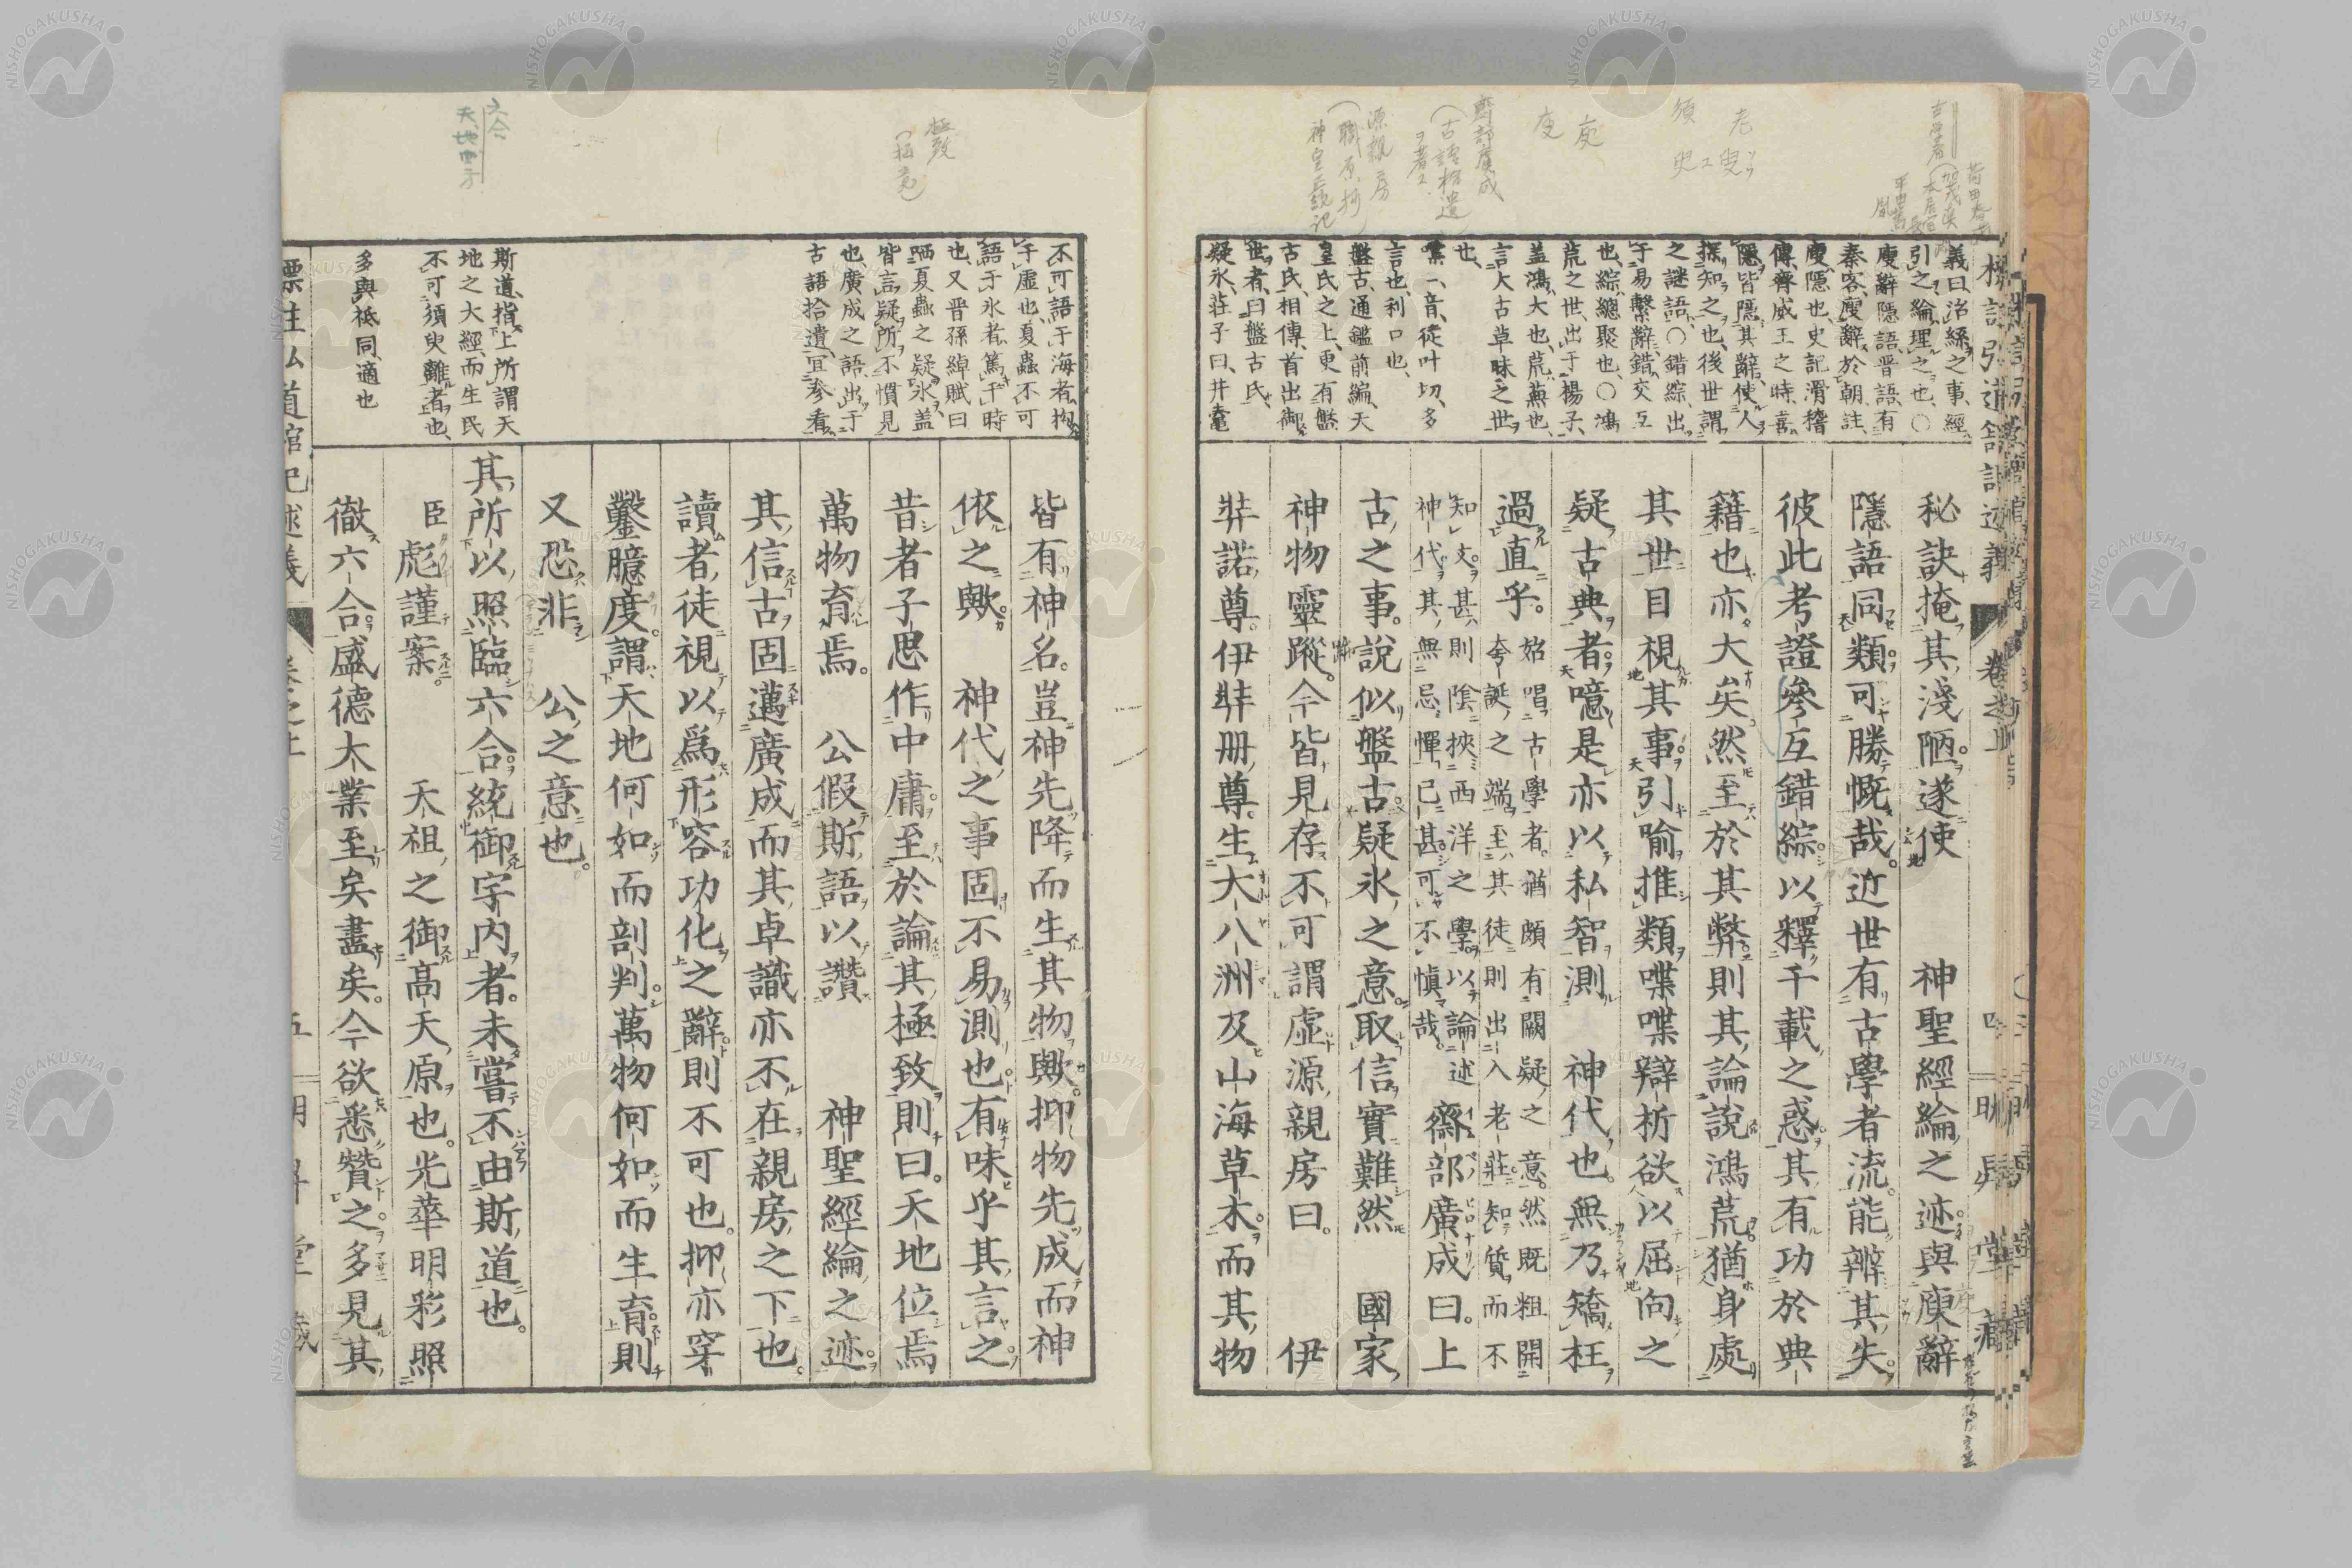 義曰、治絲之事、經
引之、綸理之也、〇
廋辭隱語、晋語、有
秦客、廋辭於朝、註、
廋、隱也、史記滑稽
傳、齊威王之時、喜
隱、皆隱其辭、使人
探知之也、後世謂
之謎語、〇錯綜、出
于易繫辭、錯、交互
也、綜、總聚也、〇鴻
荒之世、出于楊子、
盖鴻、大也、荒、蕪也、
言大古草昧之世
也、
喋一音、從叶切、多
言也、利口也、
盤古、通鑑前編、天
皇氏之上、更有盤
古氏、相傳、首出御
世者、曰盤古氏、
疑氷、莊子曰、井鼃
秘訣掩其淺陋。遂使　神聖經綸之迹與廋辭
隱語同類。可勝慨哉。近世有古學者流。能辨其失。
彼此考證。參互錯綜。以釋千載之惑。其有功於典
籍也亦大矣。然至於其弊。則其論說鴻荒。猶身處
其世目視其事。引喻推類。喋喋辯析。欲以屈向之
疑古典者。噫是亦以私智測　神代也。無乃矯枉
過直乎。
始唱古學者。猶頗有闕疑之意。然既粗開
夸誕之端。至其徒則出入老莊。知贊而不
知文。甚則陰挾西洋之學。以論述
神代。其無忌憚已甚。可不愼哉。
齋部廣成曰。上
古之事。說似盤古。疑氷之意。取信實難。然　國家
神物靈蹤。今皆見存。不可謂虛。源親房曰。　伊
弉諾尊。伊弉册尊。生大八洲及山海草木。而其物
不可語于海者、拘
于虛也、夏蟲不可
語于氷者、篤于時
也、又晋孫綽賦曰
哂夏蟲之疑氷、盖
皆言疑所不慣見
也、廣成之語、出于
古語拾遺、宜參看、
斯道、指上所謂天
地之大經、而生民
不可須臾離者也、
多與祗同、適也
皆有神名。豈神先降而生其物歟。抑物先成而神
依之歟。　神代之事。固不易測也。有味乎其言之。
昔者子思作中庸。至於論其極致。則曰。天地位焉
萬物育焉。　公假斯語以讚　神聖經綸之迹。
其信古固邁廣成。而其卓識亦不在親房之下也。
讀者徒視以爲形容功化之辭則不可也。抑亦穿
鑿臆度。謂天地何如而剖判。萬物何如而生育。則
又恐非　公之意也。
其所以照臨六合統御宇內者。未嘗不由斯道也。
臣彪謹案。　天祖之御高天原也。光華明彩。照
徹六合。盛德大業至矣盡矣。今欲悉贊之。多見其